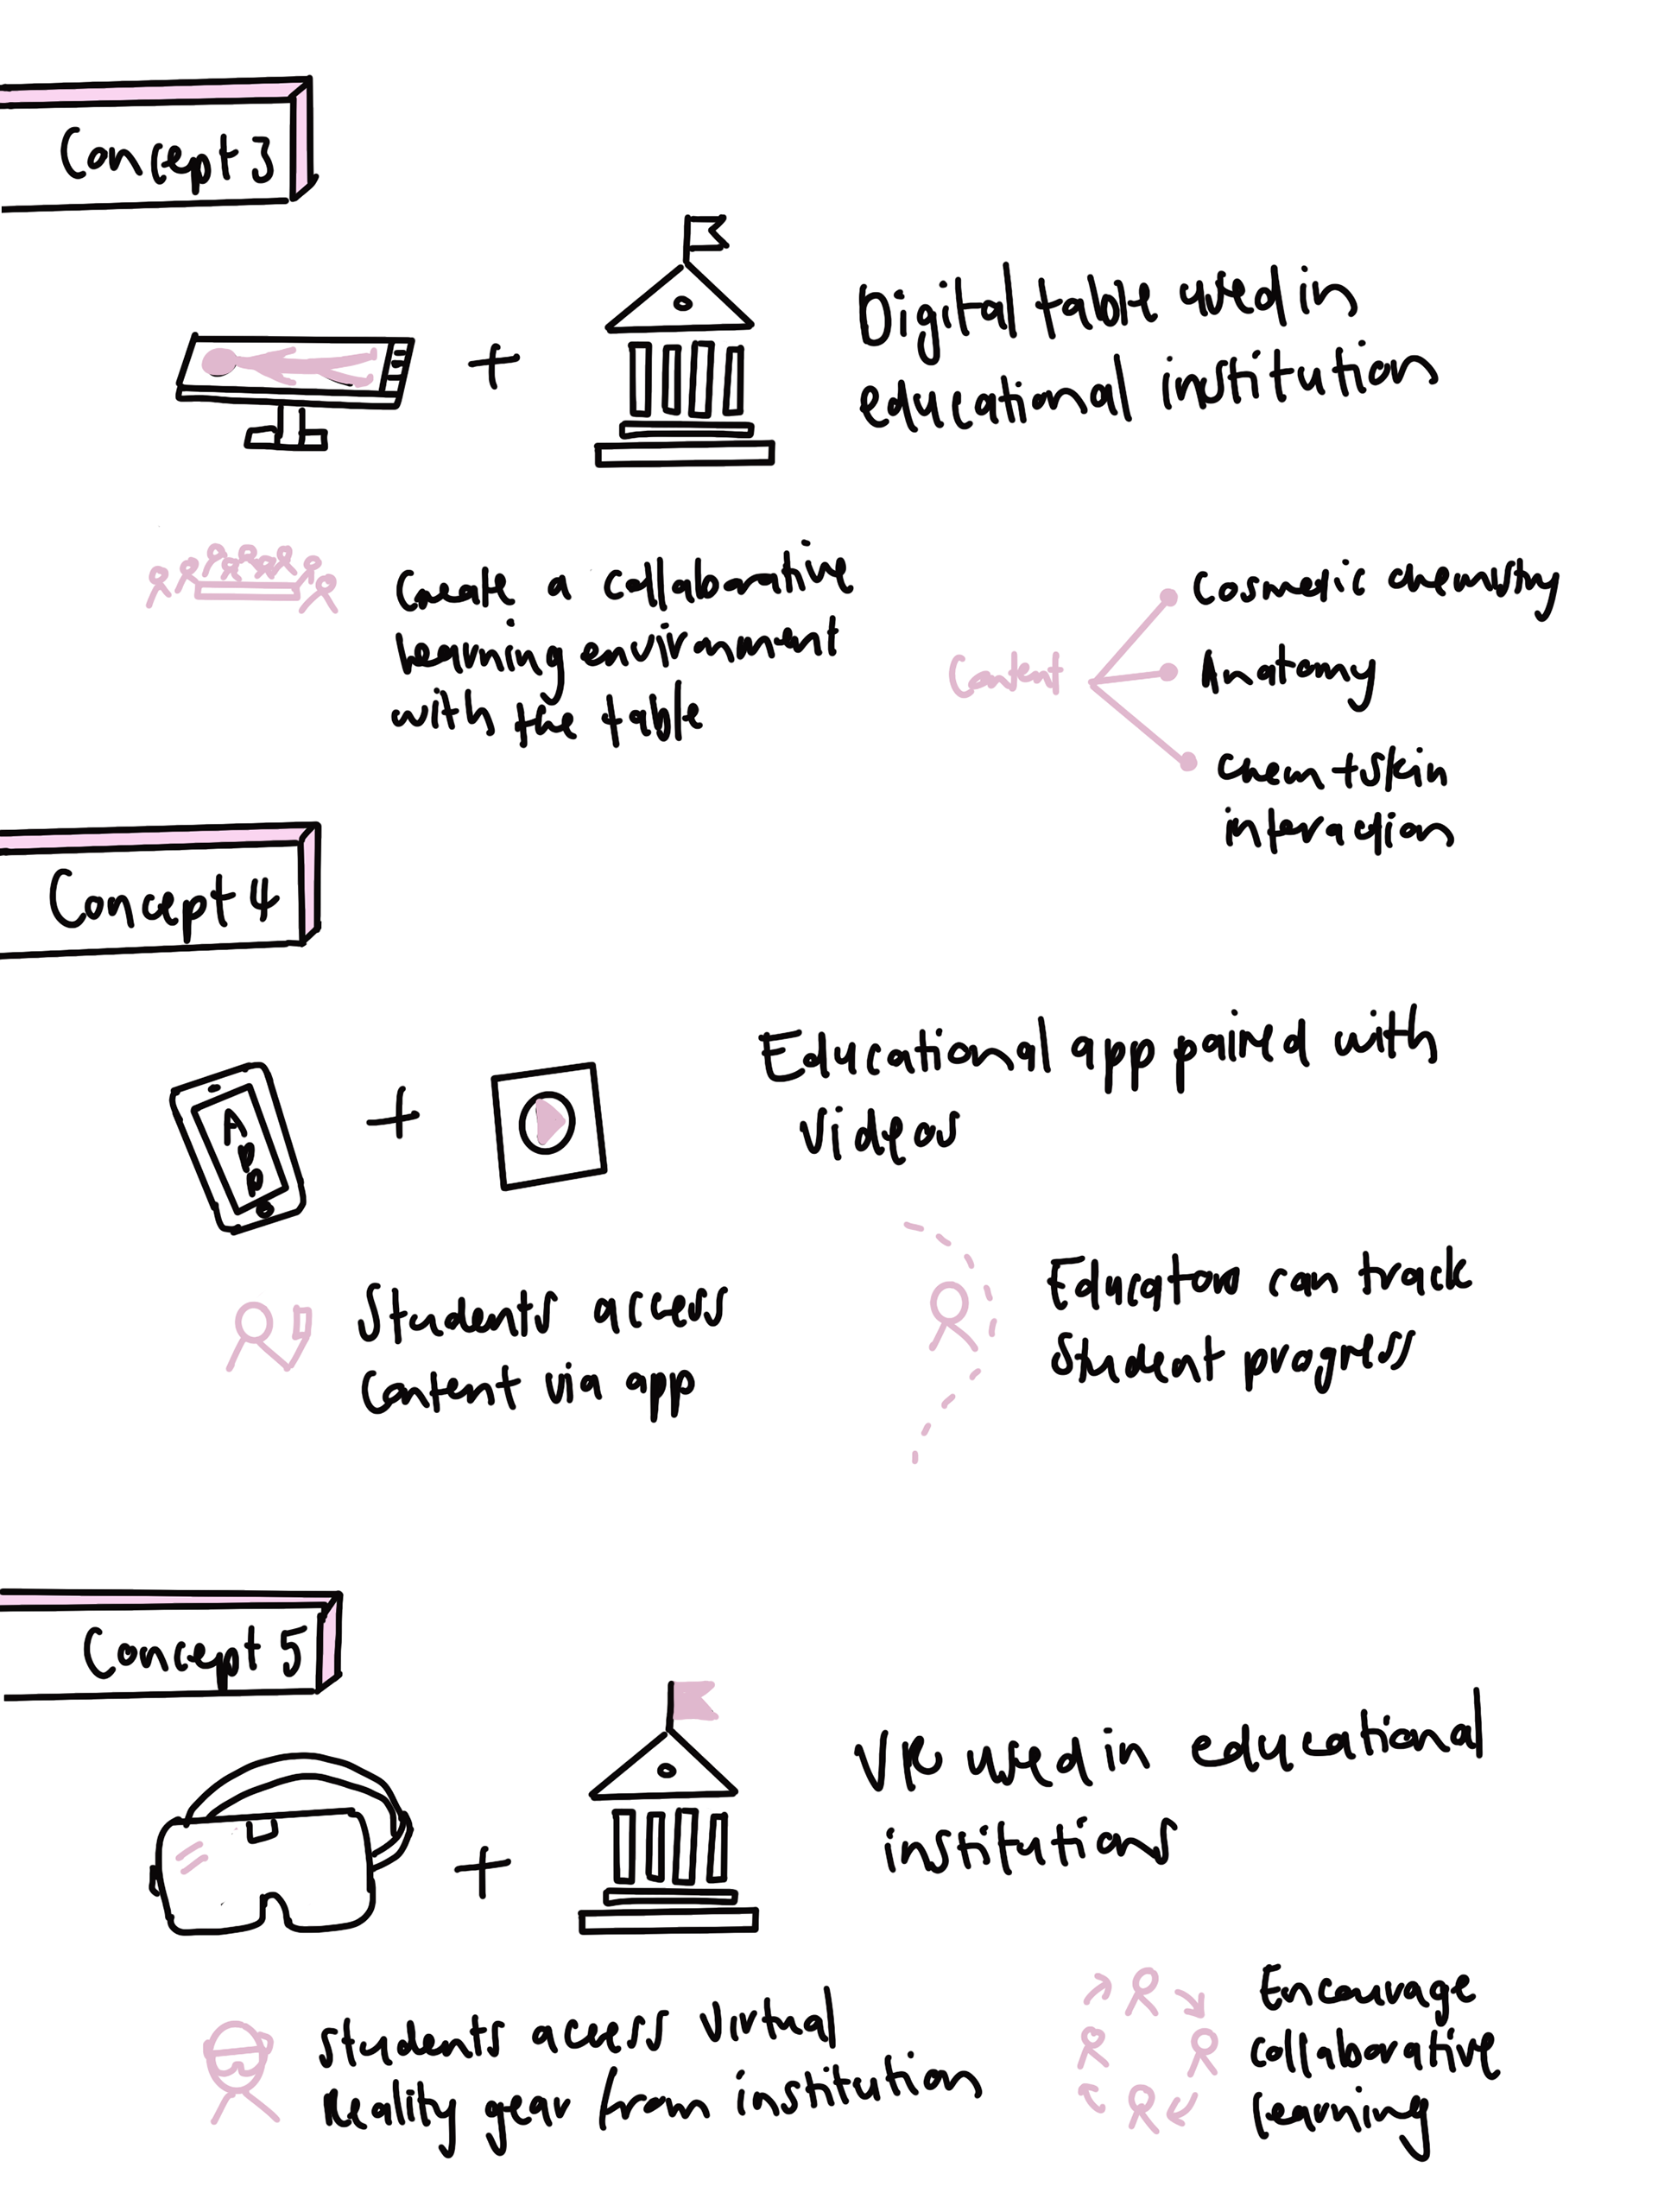 Concept 3
+
Digital table used in
educational institution
Create a collaborative
learning environment
with the table
Content
Cosmetic chemistry
Anatomy
Chem + skin
interaction
Concept 4
APP
+
Educational app paired with
videos
Students access
content via app
Educators can track
student progress
Concept 5
+
VR used in educational
institutions
Students access virtual
reality gear from institution
Encourage
collaborative
learning